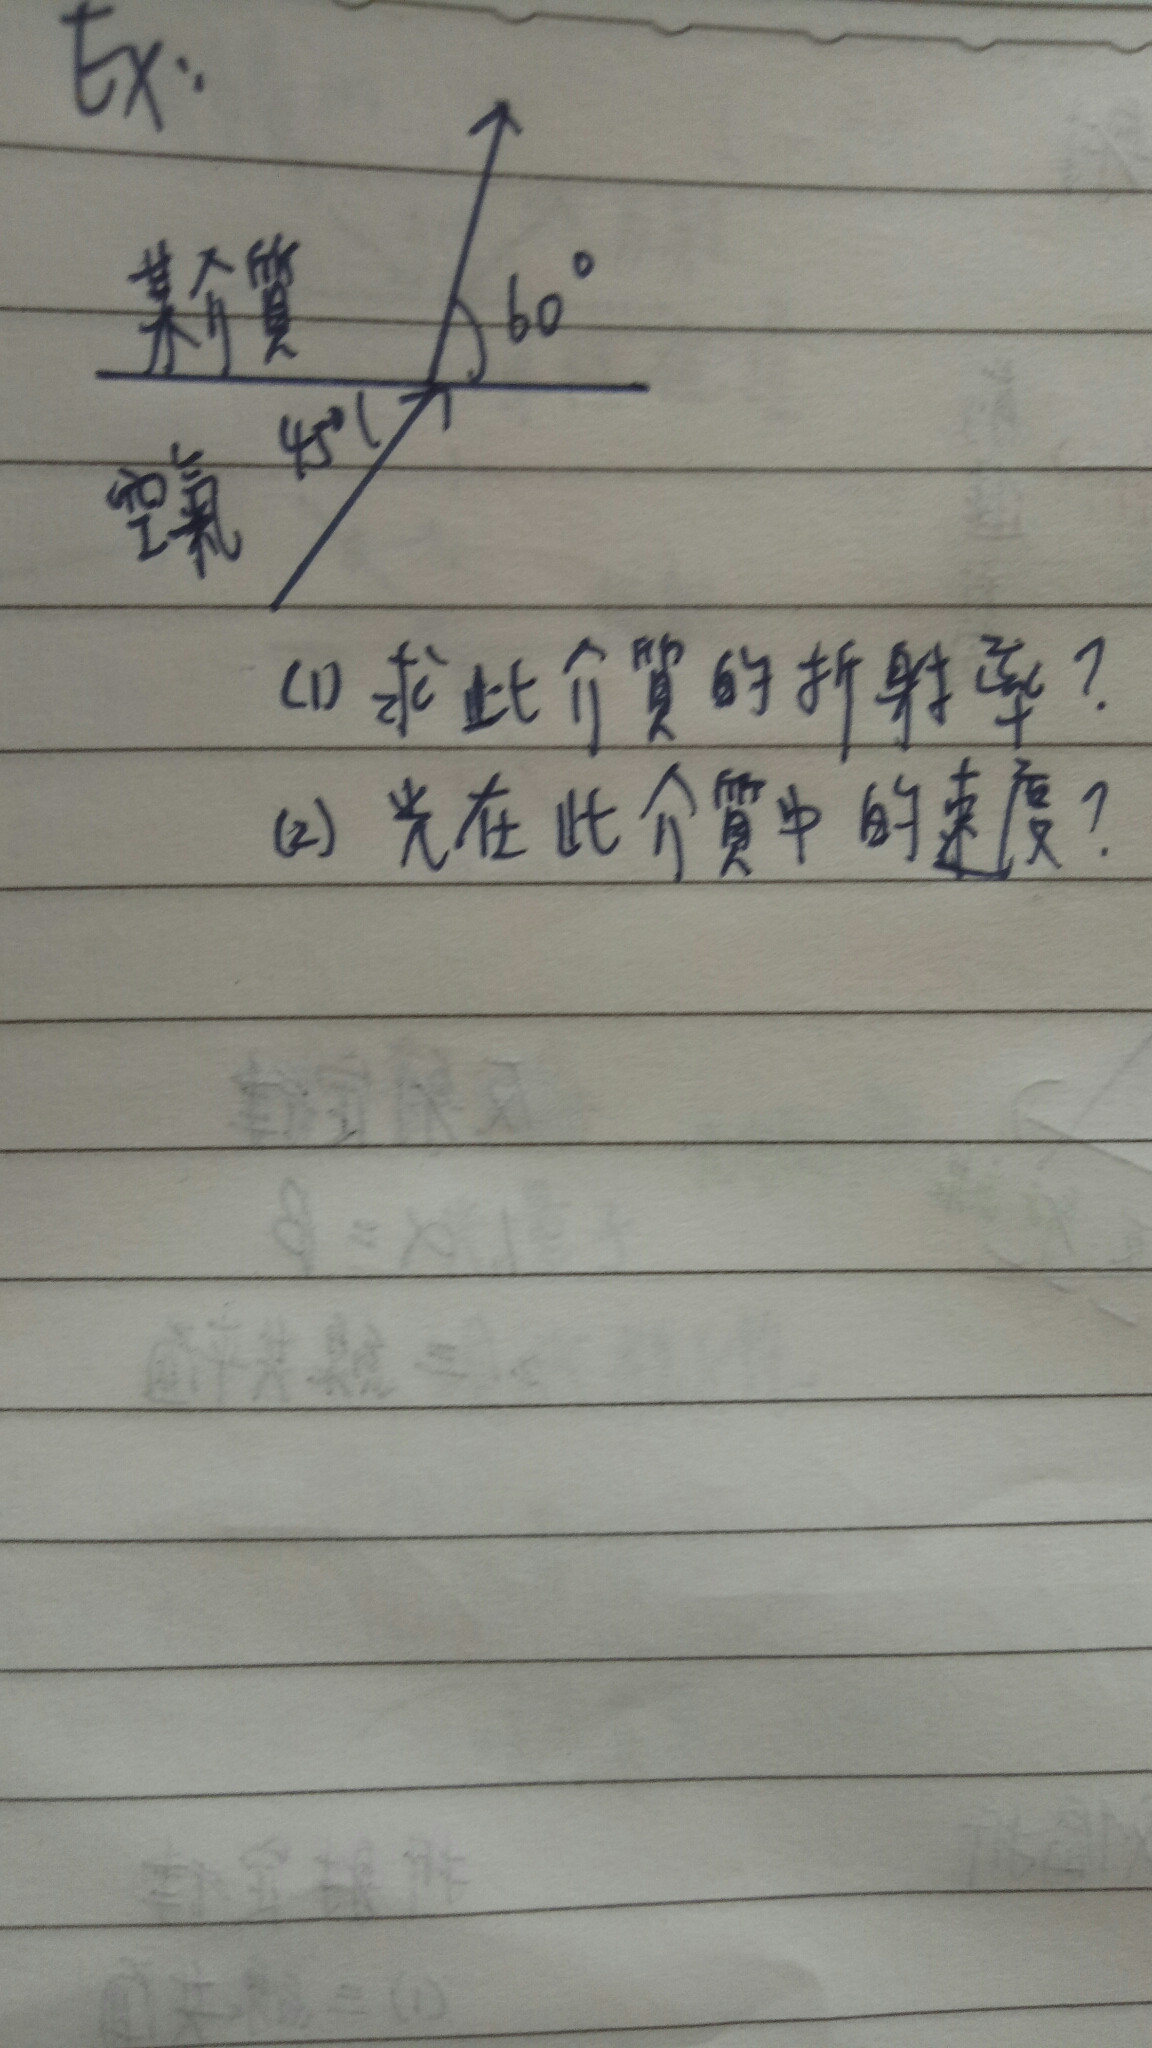 Ex:
某介質
60°
45°
空氣
(1) 求此介質的折射率?
(2) 光在此介質中的速度?